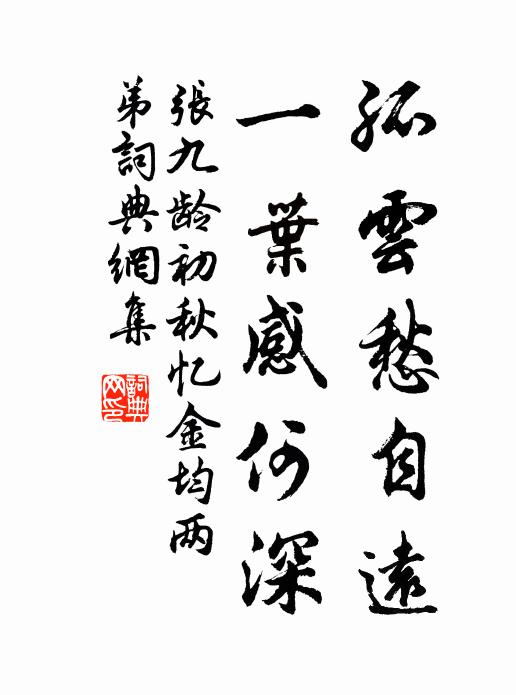 孤雲愁自遠
一葉感何深
張九龄初秋忆金均两
弟詞典網集
詞典網印